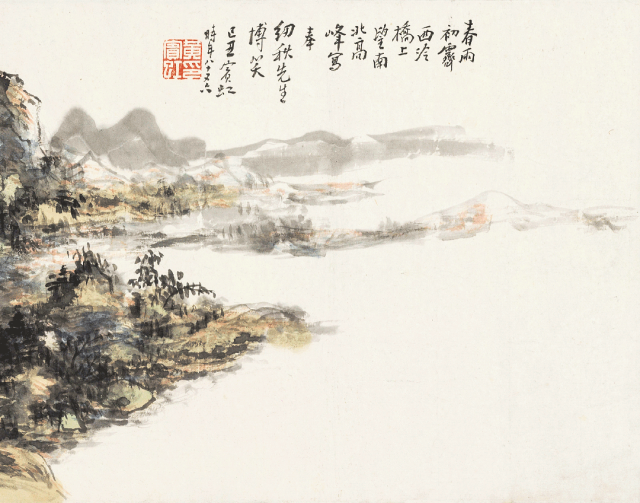 春雨
初霽
西泠
橋上
望南
北高
峰寫
奉
紉秋先生
博笑
己丑賓虹
時年八十又六